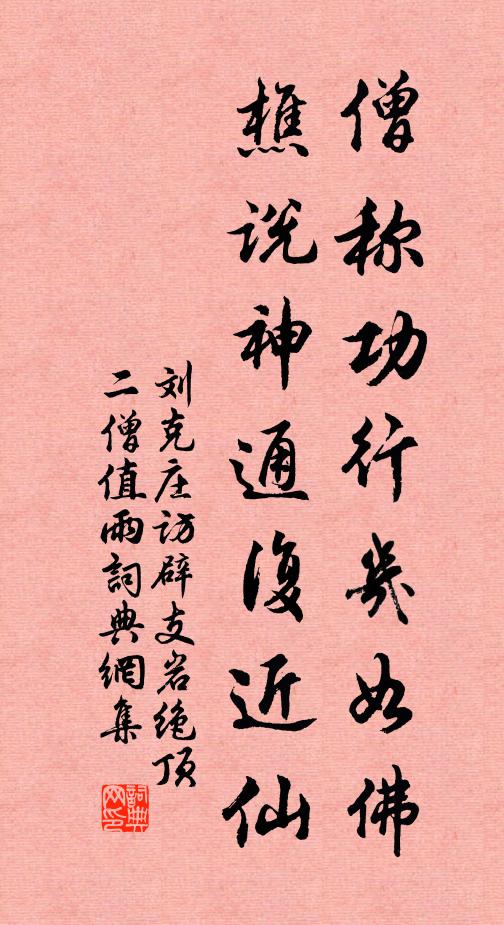 僧称功行几如佛
樵说神通復近仙
刘克庄访辟支岩绝顶
二僧值雨詞典網集
詞典网印